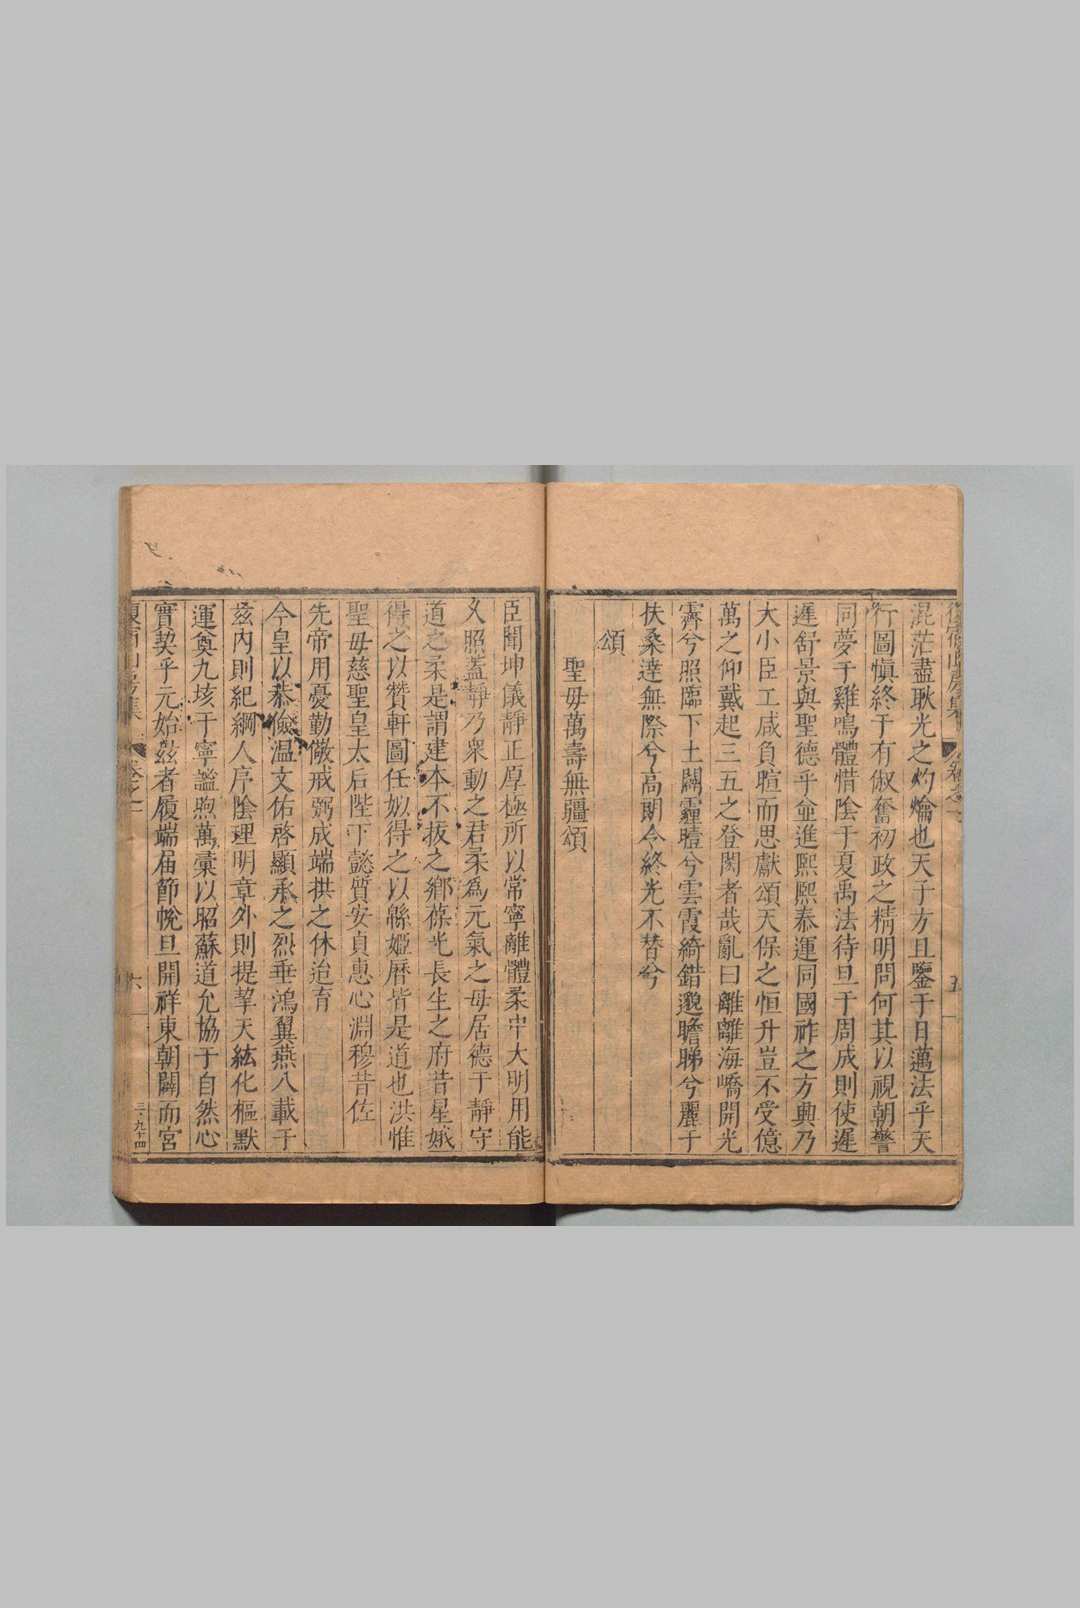 混茫盡耿光之灼爚也天子方且鑒于日邁法乎天
行圖愼終于有俶奮初政之精明問何其以視朝警
同夢于雞鳴體惜陰于夏禹法待旦于周成則使遲
遲舒景與聖德乎並進熙熙泰運同國祚之方興乃
大小臣工咸負暄而思獻頌天保之恒升豈不受億
萬之仰戴起三五之登閎者哉亂曰離離海嶠開光
霽兮照臨下土闢霾曀兮雲霞綺錯邈瞻睇兮麗于
扶桑達無際兮高朗令終光不替兮
頌
聖母萬壽無疆頌
臣聞坤儀靜正厚極所以常寧離體柔中大明用能
久照蓋靜乃衆動之君柔爲元氣之母居德于靜守
道之柔是謂建本不拔之鄉葆光長生之府昔星娥
得之以贊軒圖任姒得之以緜姬曆皆是道也洪惟
聖母慈聖皇太后陛下懿質安貞惠心淵穆昔佐
先帝用憂勤儆戒弼成端拱之休迨育
今皇以恭儉温文佑啓顯承之烈垂鴻翼燕八載于
茲内則紀綱人序陰理明章外則提挈天紘化樞默
運奠九垓于寧謐煦萬彙以昭蘇道允協于自然心
實契乎元始茲者履端届節帨旦開祥東朝闢而宮
山房集
卷之一
五
六
三・九十四